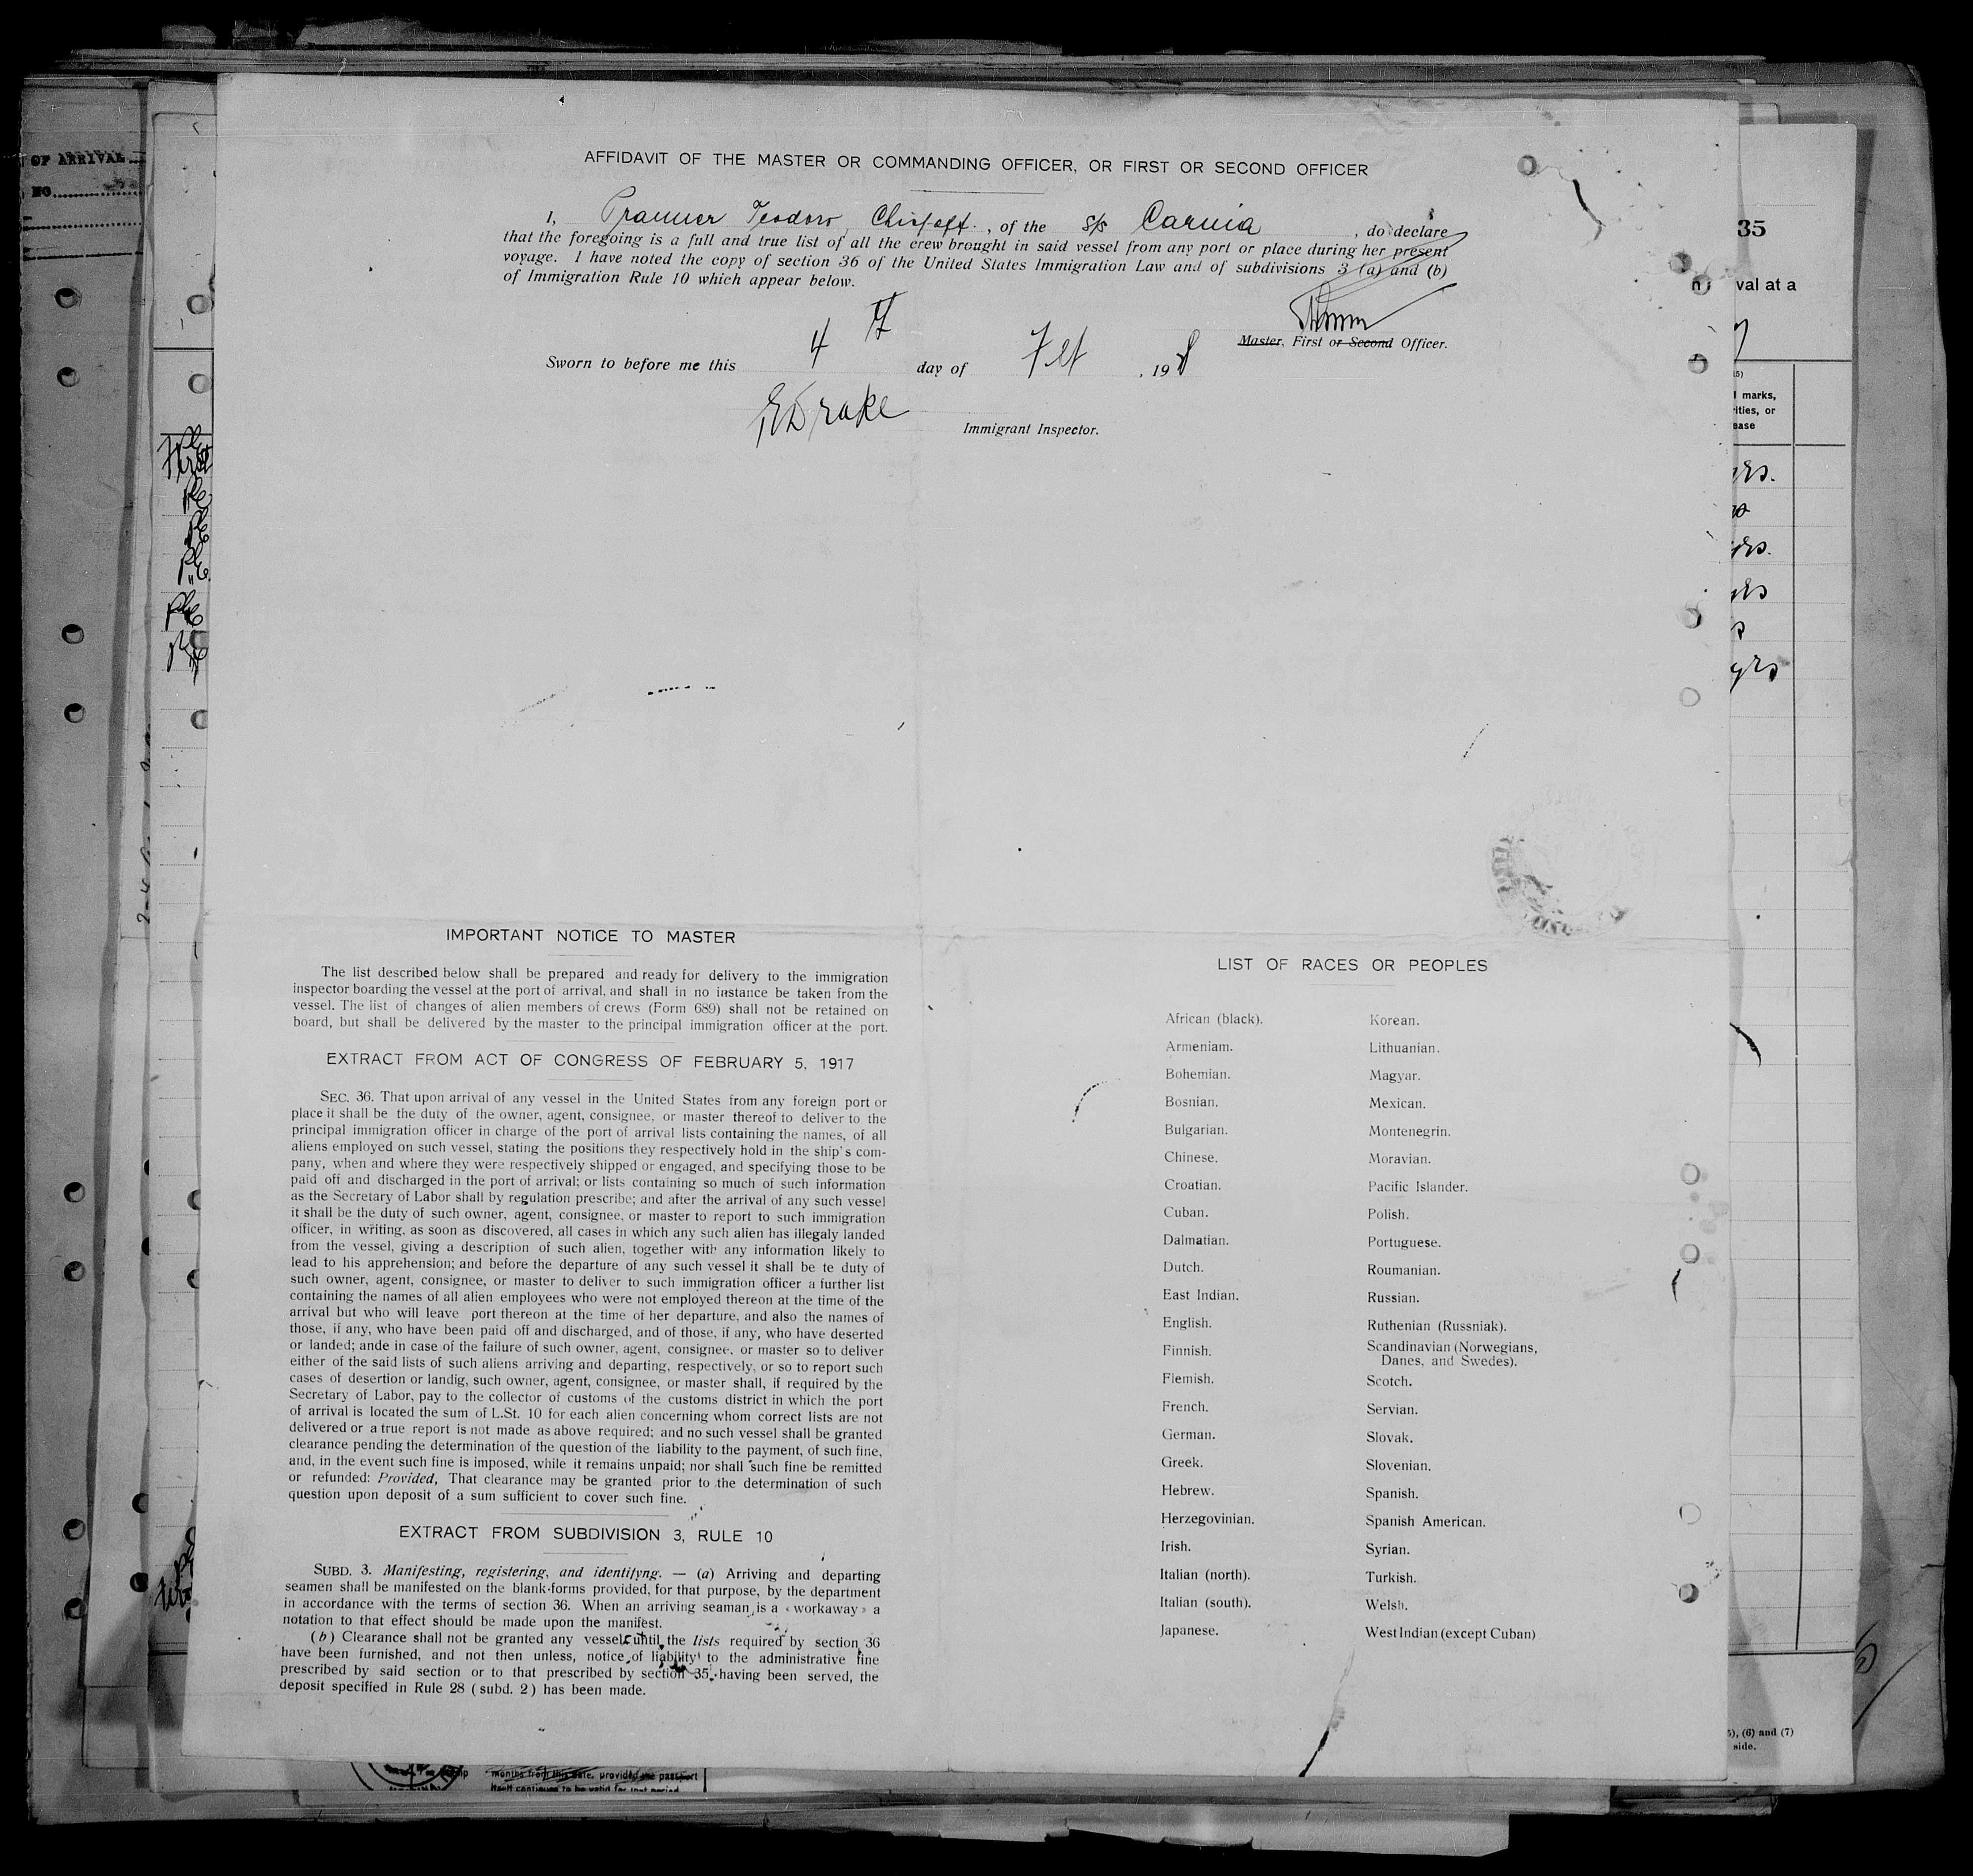 AFFIDAVIT OF THE MASTER OR COMMANDING OFFICER, OR FIRST OR SECOND OFFICER
I, Teodoro, of the S/s Carnia, do declare
that the foregoing is a full and true list of all the crew brought in said vessel from any port or place during her present
voyage. I have noted the copy of section 36 of the United States Immigration Law and of subdivisions 3 (a) and (b)
of Immigration Rule 10 which appear below.
Master, First or Second Officer.
Sworn to before me this 4 day of , 198
Drake
Immigrant Inspector.
IMPORTANT NOTICE TO MASTER
The list described below shall be prepared and ready for delivery to the immigration
inspector boarding the vessel at the port of arrival, and shall in no instance be taken from the
vessel. The list of changes of alien members of crews (Form 689) shall not be retained on
board, but shall be delivered by the master to the principal immigration officer at the port.
EXTRACT FROM ACT OF CONGRESS OF FEBRUARY 5, 1917
SEC. 36. That upon arrival of any vessel in the United States from any foreign port or
place it shall be the duty of the owner, agent, consignee, or master thereof to deliver to the
principal immigration officer in charge of the port of arrival lists containing the names, of all
aliens employed on such vessel, stating the positions they respectively hold in the ship's com-
pany, when and where they were respectively shipped or engaged, and specifying those to be
paid off and discharged in the port of arrival; or lists containing so much of such information
as the Secretary of Labor shall by regulation prescribe; and after the arrival of any such vessel
it shall be the duty of such owner, agent, consignee, or master to report to such immigration
officer, in writing, as soon as discovered, all cases in which any such alien has illegaly landed
from the vessel, giving a description of such alien, together with any information likely to
lead to his apprehension; and before the departure of any such vessel it shall be te duty of
such owner, agent, consignee, or master to deliver to such immigration officer a further list
containing the names of all alien employees who were not employed thereon at the time of the
arrival but who will leave port thereon at the time of her departure, and also the names of
those, if any, who have been paid off and discharged, and of those, if any, who have deserted
or landed; ande in case of the failure of such owner, agent, consignee, or master so to deliver
either of the said lists of such aliens arriving and departing, respectively, or so to report such
cases of desertion or landig, such owner, agent, consignee, or master shall, if required by the
Secretary of Labor, pay to the collector of customs of the customs district in which the port
of arrival is located the sum of L.St. 10 for each alien concerning whom correct lists are not
delivered or a true report is not made as above required; and no such vessel shall be granted
clearance pending the determination of the question of the liability to the payment, of such fine,
and, in the event such fine is imposed, while it remains unpaid; nor shall such fine be remitted
or refunded: Provided, That clearance may be granted prior to the determination of such
question upon deposit of a sum sufficient to cover such fine.
EXTRACT FROM SUBDIVISION 3, RULE 10
SUBD. 3. Manifesting, registering, and identifyng. — (a) Arriving and departing
seamen shall be manifested on the blank-forms provided, for that purpose, by the department
in accordance with the terms of section 36. When an arriving seaman is a «workaway» a
notation to that effect should be made upon the manifest.
(b) Clearance shall not be granted any vessel until the lists required by section 36
have been furnished, and not then unless, notice of liability to the administrative fine
prescribed by said section or to that prescribed by section 35, having been served, the
deposit specified in Rule 28 (subd. 2) has been made.
LIST OF RACES OR PEOPLES
African (black).
Armeniam.
Bohemian.
Bosnian.
Bulgarian.
Chinese.
Croatian.
Cuban.
Dalmatian.
Dutch.
East Indian.
English.
Finnish.
Flemish.
French.
German.
Greek.
Hebrew.
Herzegovinian.
Irish.
Italian (north).
Italian (south).
Japanese.
Korean.
Lithuanian.
Magyar.
Mexican.
Montenegrin.
Moravian.
Pacific Islander.
Polish.
Portuguese.
Roumanian.
Russian.
Ruthenian (Russniak).
Scandinavian (Norwegians,
Danes, and Swedes).
Scotch.
Servian.
Slovak.
Slovenian.
Spanish.
Spanish American.
Syrian.
Turkish.
Welsh.
West Indian (except Cuban)
OF ARRIVAL
NO
35
val at a
marks,
or
yrs
(6) and (7)
side.
months from this date, provided the passport